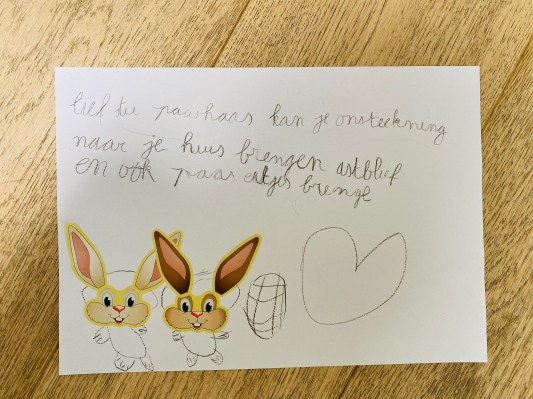 lief tu paashaas kan je onsteekning
naar je huus brengen astblief
en ook paas eitjes brenge